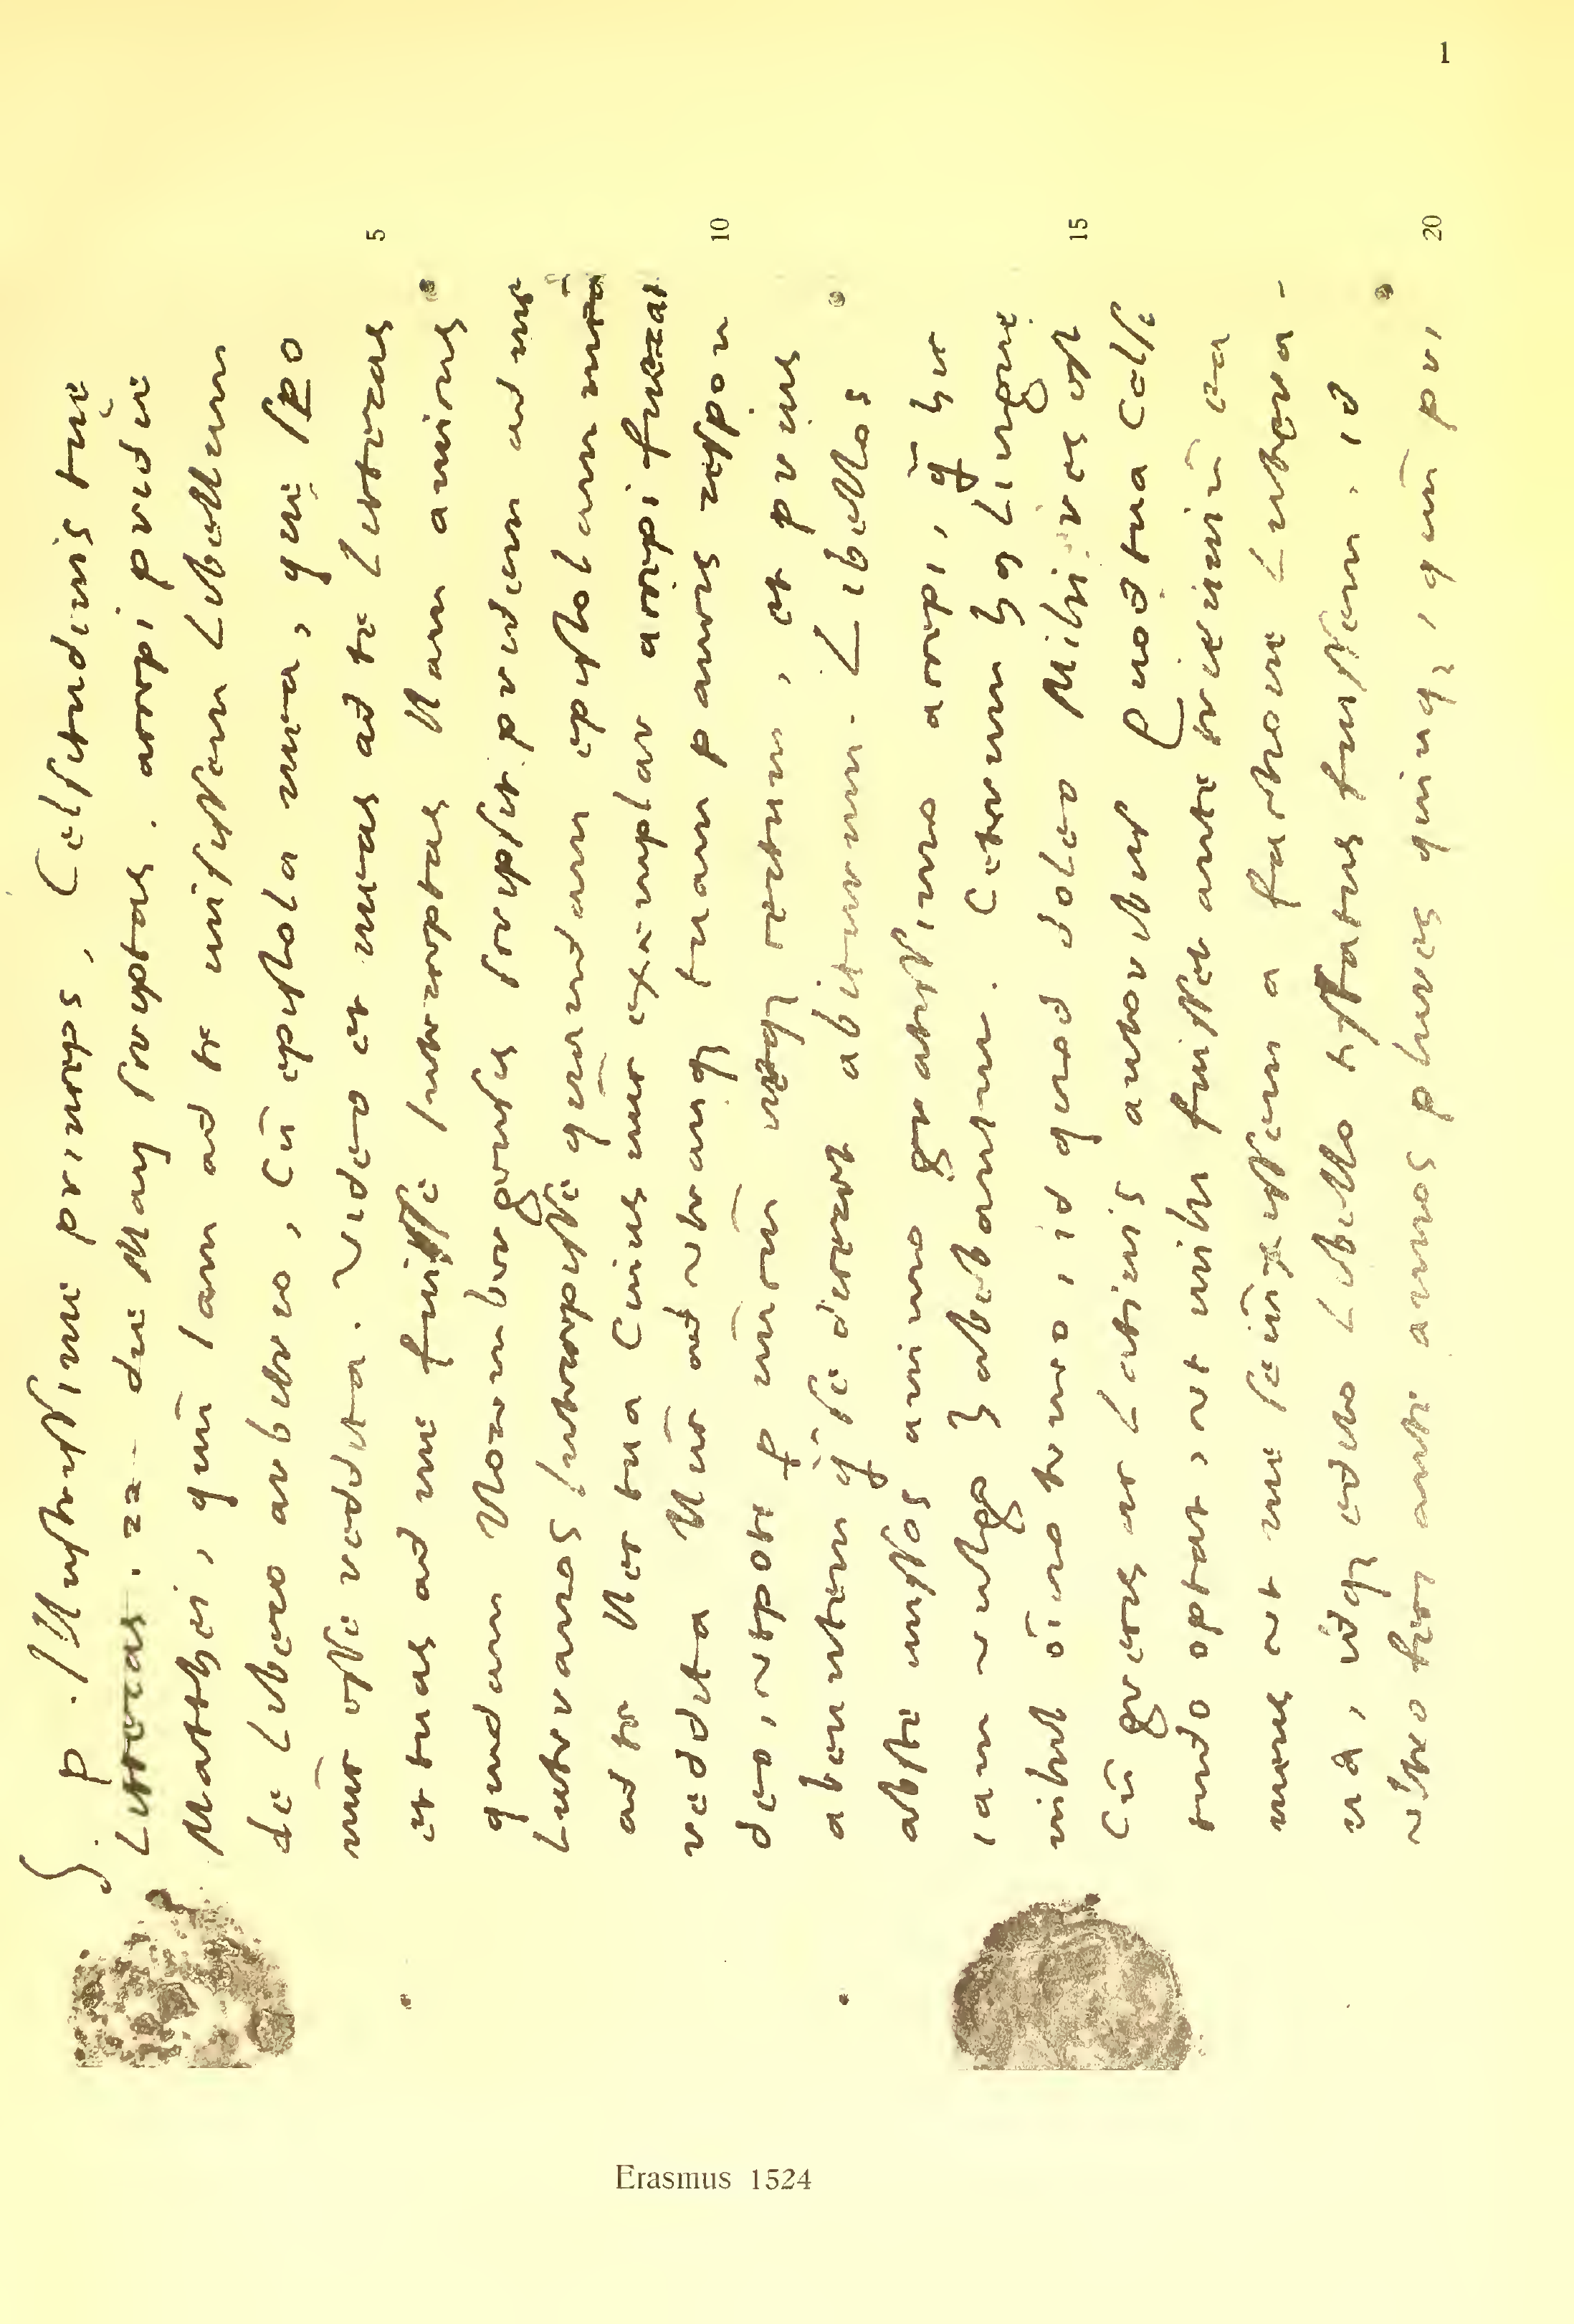 1
S. p. Illustrissime princeps, Celsitudinis tuę
Litteras . 22 die Maij scriptas . accepi pridie
Matthęi, quū iam ad te misissem Libellum
de Libero arbitrio, cū epistola mea, quę spero
5 nūc esse reddita. Video et meas ad te Litteras
et tuas ad me fuisse interceptas Nam amicus
quidam Norenbergensis scripsit pridem ad me
Luteranos intercepisse quandam epistolam meā
ad te Nec tua Cuius nūc exemplar accepi fuerat
10 reddita Nūc ad utranq; tuam paucis respon
deo, utpote p nūciū neq; certum, et prius
abeuntem q̄ se dixerat abiturum. Libellos
abste missos animo gratissimo accepi, q̄ hic
iam vulgo habebantur. Ceterum hꝰ linguę
15 nihil oīno teneo, id quod doleo Mihi res est
cū grecis ac Latinis autoribus Quod tua Celsi
tudo optat, ut mihi fuisset ante trienniū ea
mens ut me seiūxissem a factione Luterā-
na, idq; edito Libello testatus fuissem, id
20 ultro feci ante annos plures quinq;, quū pri
Erasmus 1524